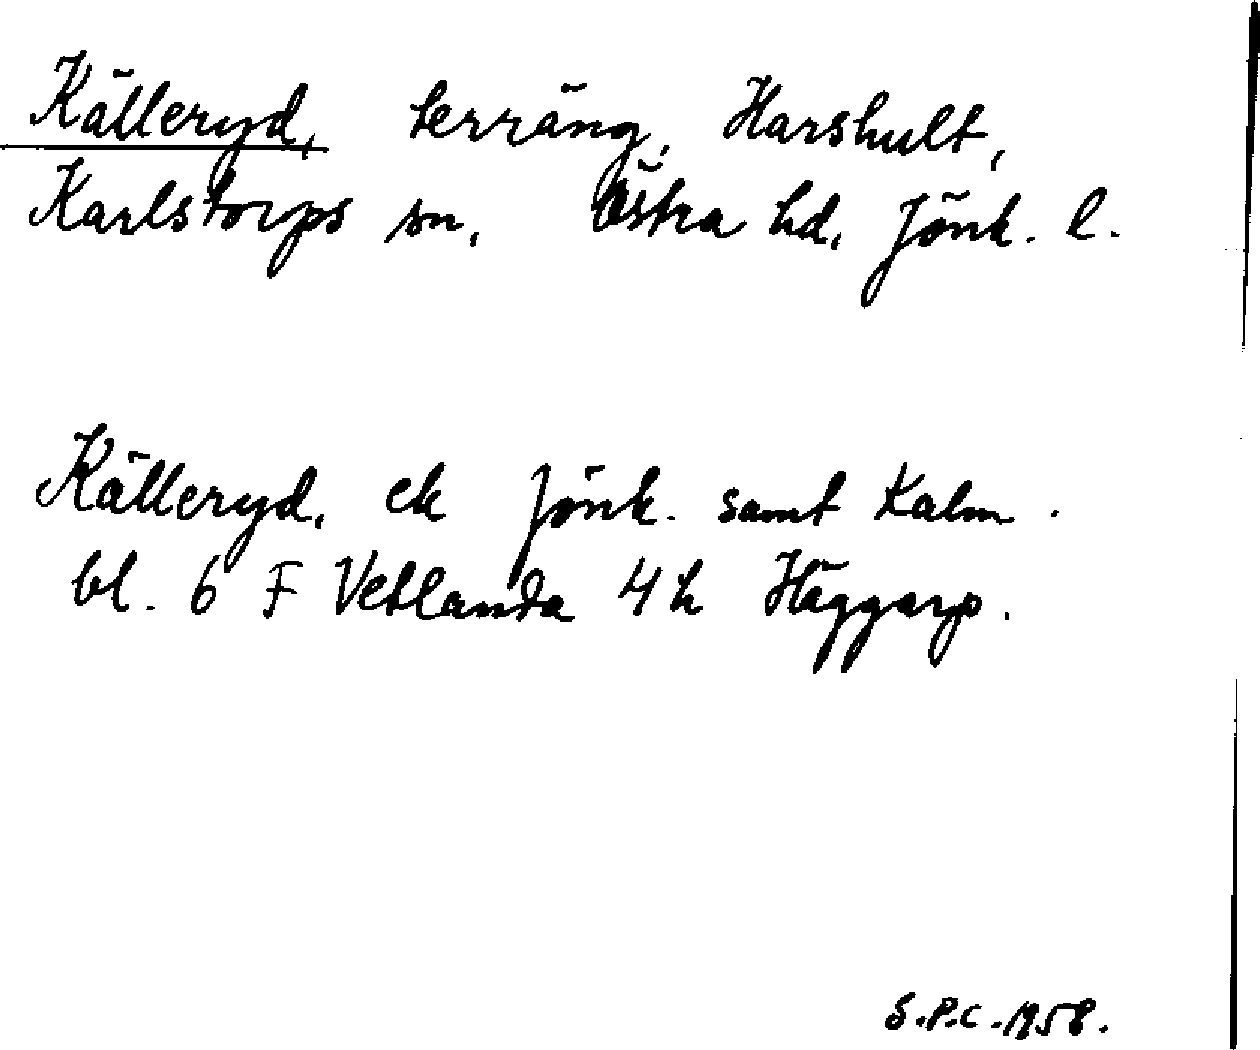 Källeryd, terräng, Harshult,
Karlstorps sn, Östra hd, Jönk. l.
Källeryd, ek Jönk. samt Kalm.
bl. 6 F Vetlanda 4 h Häggarp.
S.P.C. 1958.